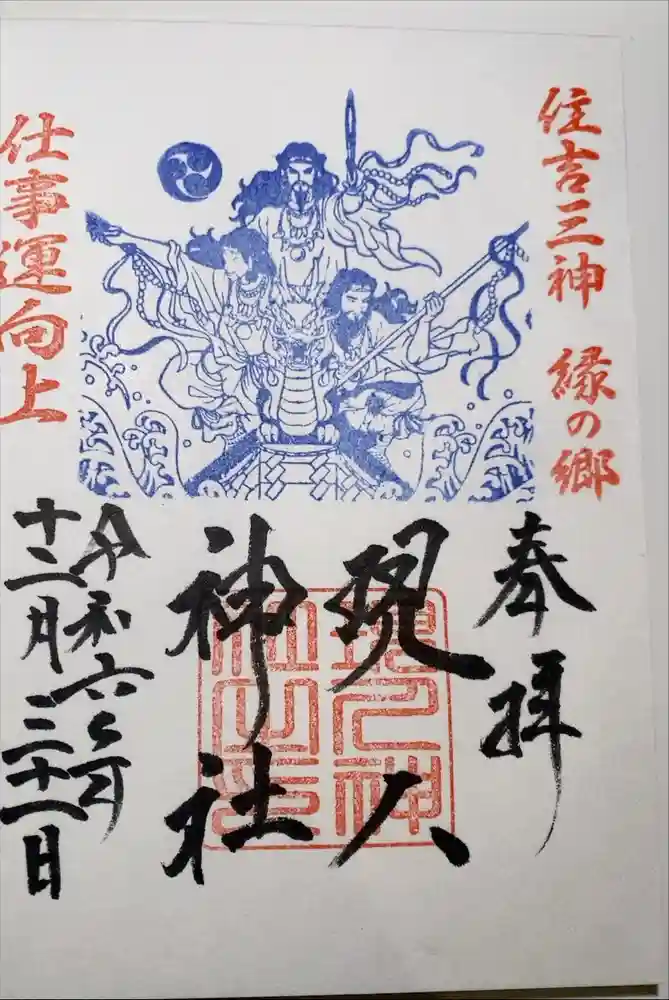 住吉三神 縁の郷
奉拝
現人
神社
令和六年
十二月三十一日
仕事運向上
現人神
社之印